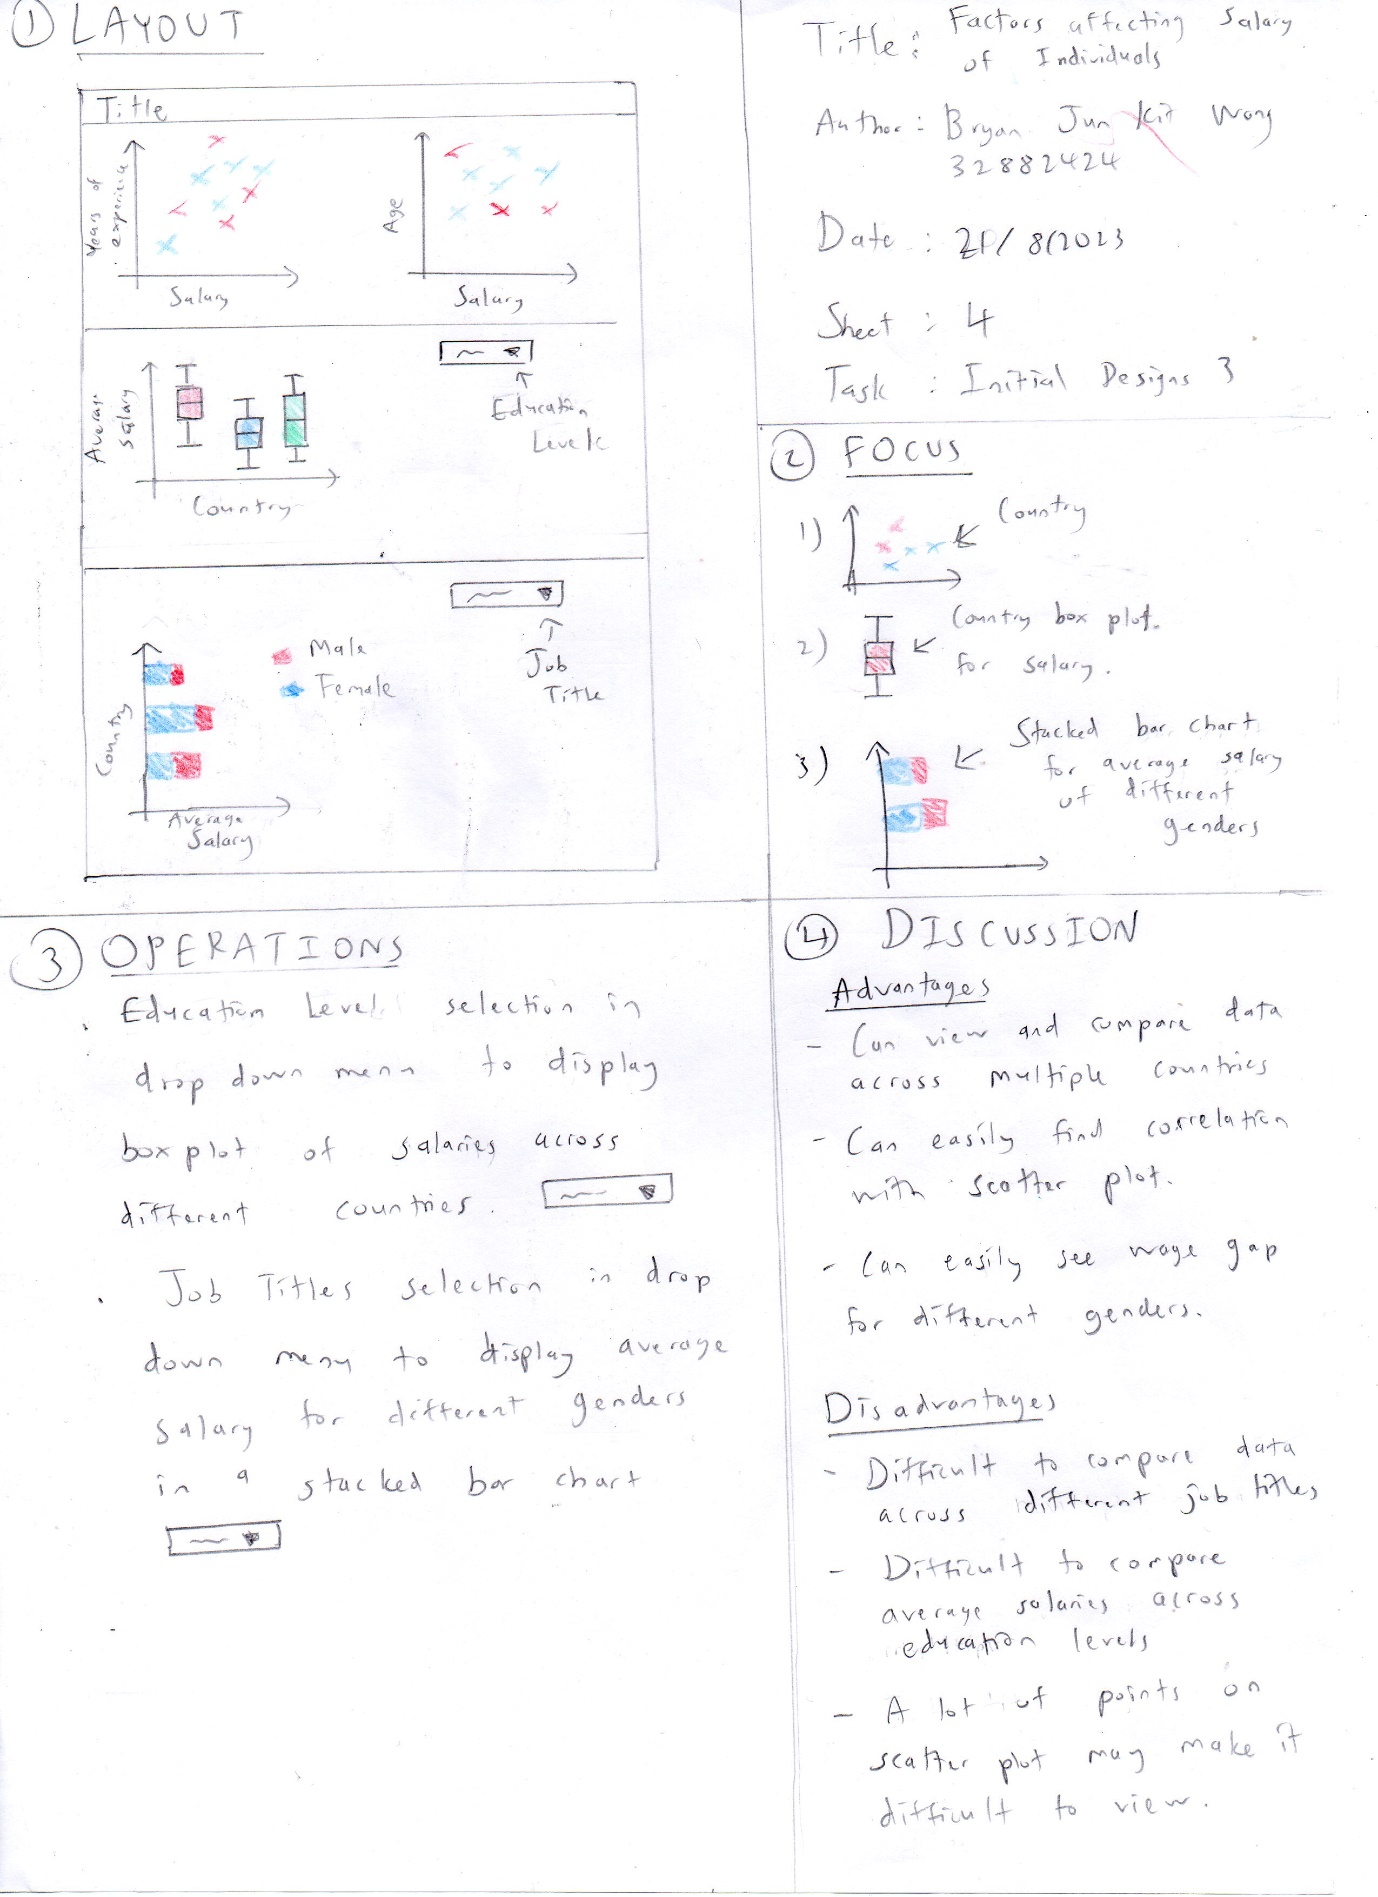 1 LAYOUT
Title
Years of
experience
Salary
Age
Salary
Average
Salary
Country
Education
Level
Male
Female
Job
Title
Country
Average
Salary
Title: Factors affecting Salary
of Individuals
Author: Bryan Jun Kit Wong
32882424
Date : /8/2023
Sheet : 4
Task : Initial Designs 3
2 FOCUS
1) Country
2) Country box plot.
for salary.
3) Stacked bar chart
for average salary
of different
genders
3 OPERATIONS
. Education Level selection in
drop down menu to display
box plot of salaries across
different countries.
. Job Titles selection in drop
down menu to display average
salary for different genders
in a stacked bar chart
4 DISCUSSION
Advantages
- Can view and compare data
across multiple countries
- Can easily find correlation
with scatter plot.
- Can easily see wage gap
for different genders.
Disadvantages
- Difficult to compare data
across different job titles
- Difficult to compare
average salaries across
education levels
- A lot of points on
scatter plot may make it
difficult to view.